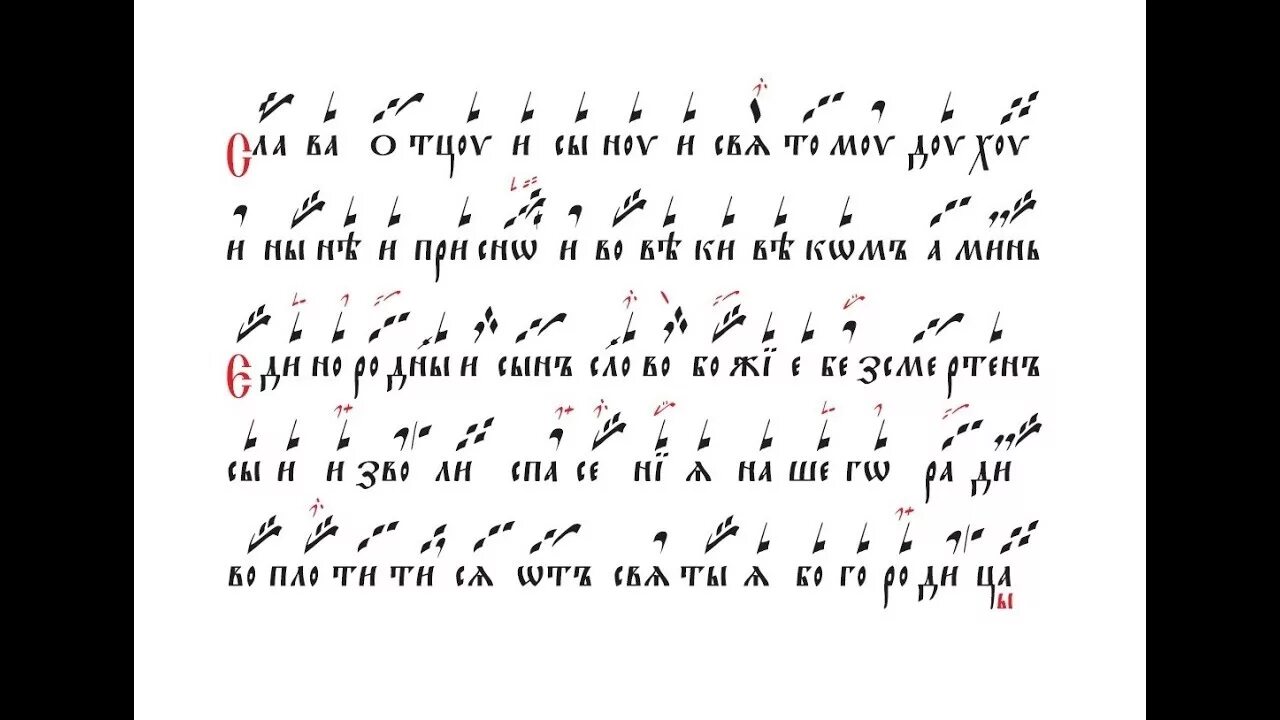 Сла ва о тцоу и сы ноу и свѧ то моу доу хоу
и ны нѣ и при снѡ и во вѣ ки вѣ кѡмъ а минь
Є ди но ро дны и сынъ сло во бо жїе бе зсме ртенъ
сы и и зво ли спа се нїѧ на ше гѡ ра ди
во пло ти ти сѧ ѿтъ свѧ ты ѧ бо го ро ди ца
ы